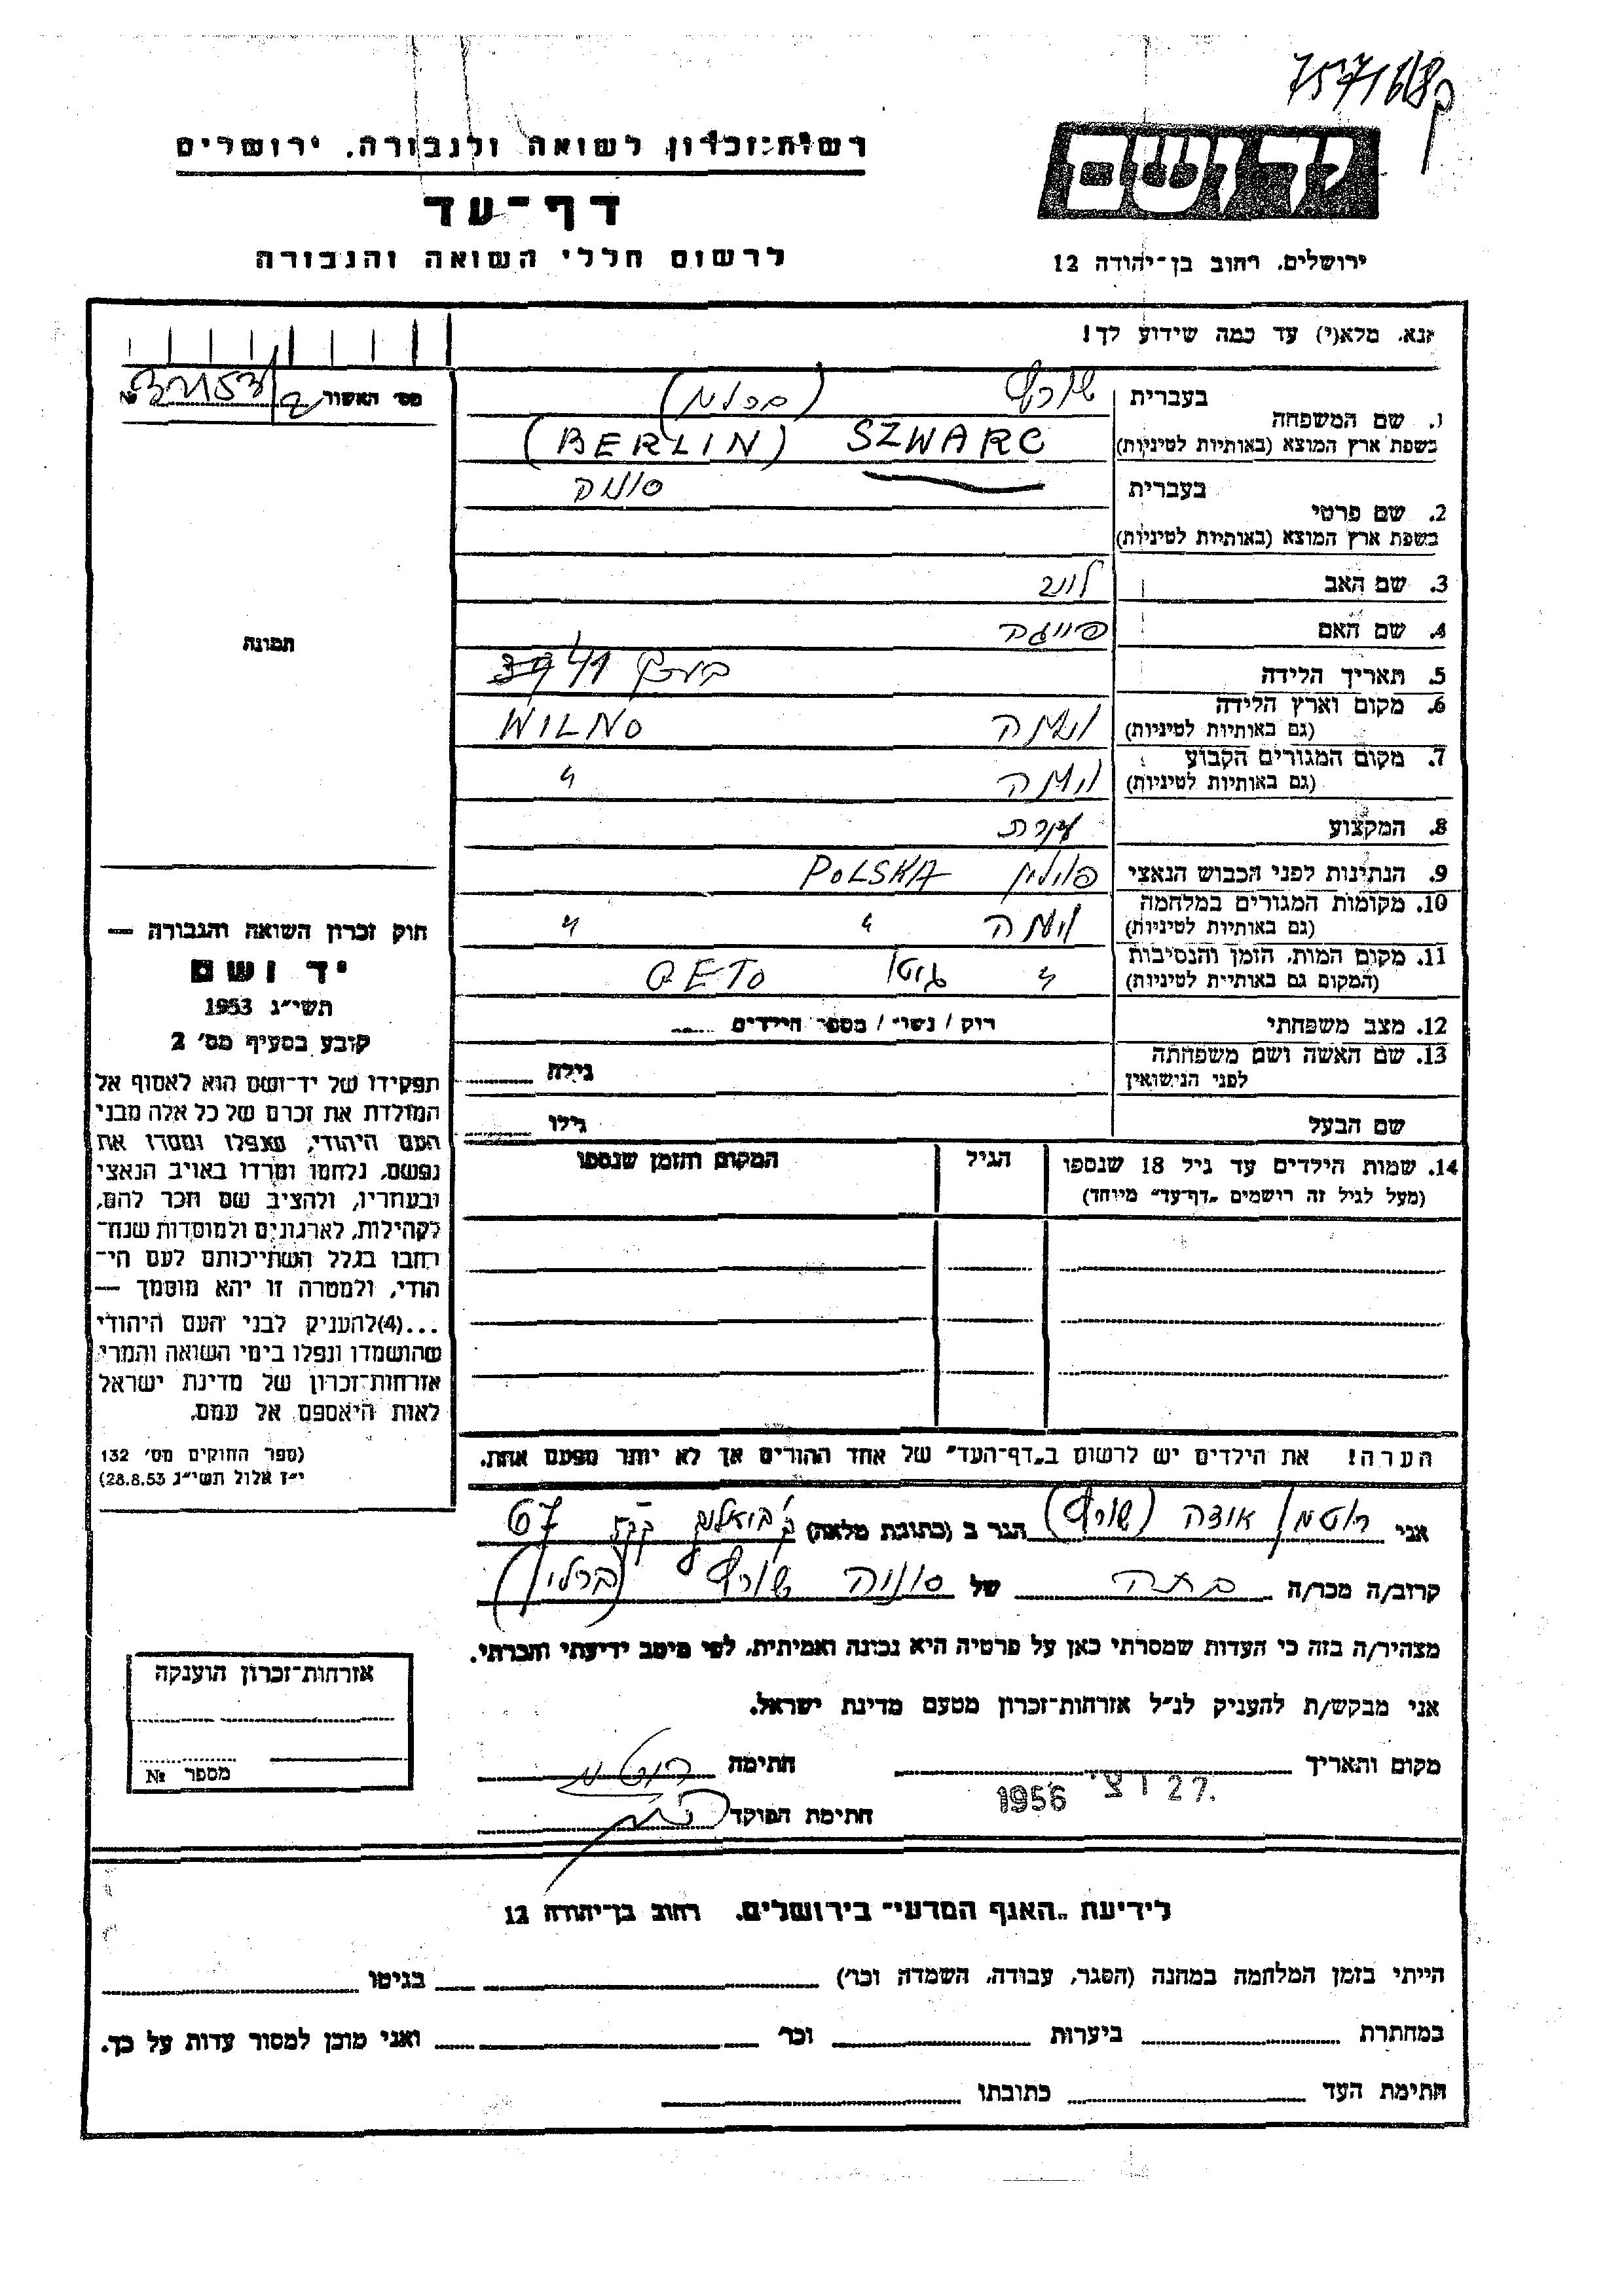 רשות-זכרון לשואה ולגבורה. ירושלים
דף-עד
לרשום חללי השואה והגבורה
יד ושם
ירושלים. רחוב בן-יהודה 12
אנא. מלא(י) עד כמה שידוע לך!
מס׳ האשור №
תמונה
1. שם המשפחה
בעברית שורץ (ברלין)
בשפת ארץ המוצא (באותיות לטיניות) SZWARC (BERLIN)
2. שם פרטי
בעברית סוניה
בשפת ארץ המוצא (באותיות לטיניות)
3. שם האב
4. שם האם פייגה
5. תאריך הלידה 41
6. מקום וארץ הלידה וילנה WILNO
(גם באותיות לטיניות)
7. מקום המגורים הקבוע וילנה "
(גם באותיות לטיניות)
8. המקצוע עקרת
9. הנתינות לפני הכבוש הנאצי פולין POLSKA
10. מקומות המגורים במלחמה וילנה " "
(גם באותיות לטיניות)
11. מקום המות. הזמן והנסיבות " גיטו GETO
(המקום גם באותיות לטיניות)
12. מצב משפחתי רוק / נשוי / מספר הילדים
13. שם האשה ושם משפחתה גילה
לפני הנישואין
שם הבעל גילו
14. שמות הילדים עד גיל 18 שנספו הגיל המקום והזמן שנספו
(מעל לגיל זה רושמים „דף-עד" מיוחד)
הערה! את הילדים יש לרשום ב„דף-העד" של אחד ההורים אך לא יותר מפעם אחת.
חוק זכרון השואה והגבורה —
יד ושם
תשי״ג 1953
קובע בסעיף מס׳ 2
תפקידו של יד-ושם הוא לאסוף אל
המולדת את זכרם של כל אלה מבני
העם היהודי, שנפלו ומסרו את
נפשם, נלחמו ומרדו באויב הנאצי
ובעוזריו, ולהציב שם וזכר להם,
לקהילות, לארגונים ולמוסדות שנח-
רבו בגלל השתייכותם לעם הי-
הודי, ולמטרה זו יהא מוסמך —
...(4) להעניק לבני העם היהודי
שהושמדו ונפלו בימי השואה והמרי
אזרחות-זכרון של מדינת ישראל
לאות היאספם אל עמם.
(ספר החוקים מס׳ 132
י״ז אלול תשי״ג 28.8.53)
אני רוטמן (שורץ) הגר ב (כתובת מלאה) 67
קרוב/ה מכר/ה בתה של סוניה שורץ (ברלין)
מצהיר/ה בזה כי העדות שמסרתי כאן על פרטיה היא נכונה ואמיתית, לפי מיטב ידיעתי והכרתי.
אני מבקש/ת להעניק לנ״ל אזרחות-זכרון מטעם מדינת ישראל.
מקום ותאריך 27. דצ׳ 1956 חתימה
חתימת הפוקד
אזרחות-זכרון הוענקה
מספר №
לידיעת „האגף המדעי" בירושלים. רחוב בן-יהודה 12
הייתי בזמן המלחמה במחנה (הסגר, עבודה, השמדה וכו׳) בגיטו
במחתרת ביערות וכו׳ ואני מוכן למסור עדות על כך.
חתימת העד כתובתו